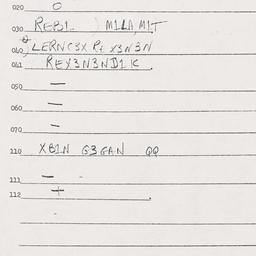 020 O
030 REBI MILA, MIT
040 LERNC3X R X3N3N
041 REX3N3ND1K
050 —
060 —
070 –
110 XBIN G3GAN QQ
111 – -
112 +